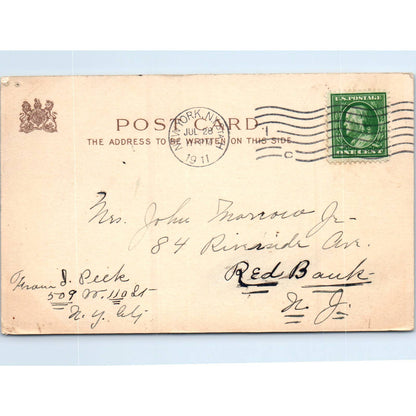 POST CARD
THE ADDRESS TO BE WRITTEN ON THIS SIDE
NEW YORK, N.Y.
JUL 28
1911
U.S. POSTAGE
ONE CENT
Mrs. John Morrow Jr-
84 Riverside Ave.
Red Bank
N J.
From J. Peck
509 W. 110 St
N.Y. City